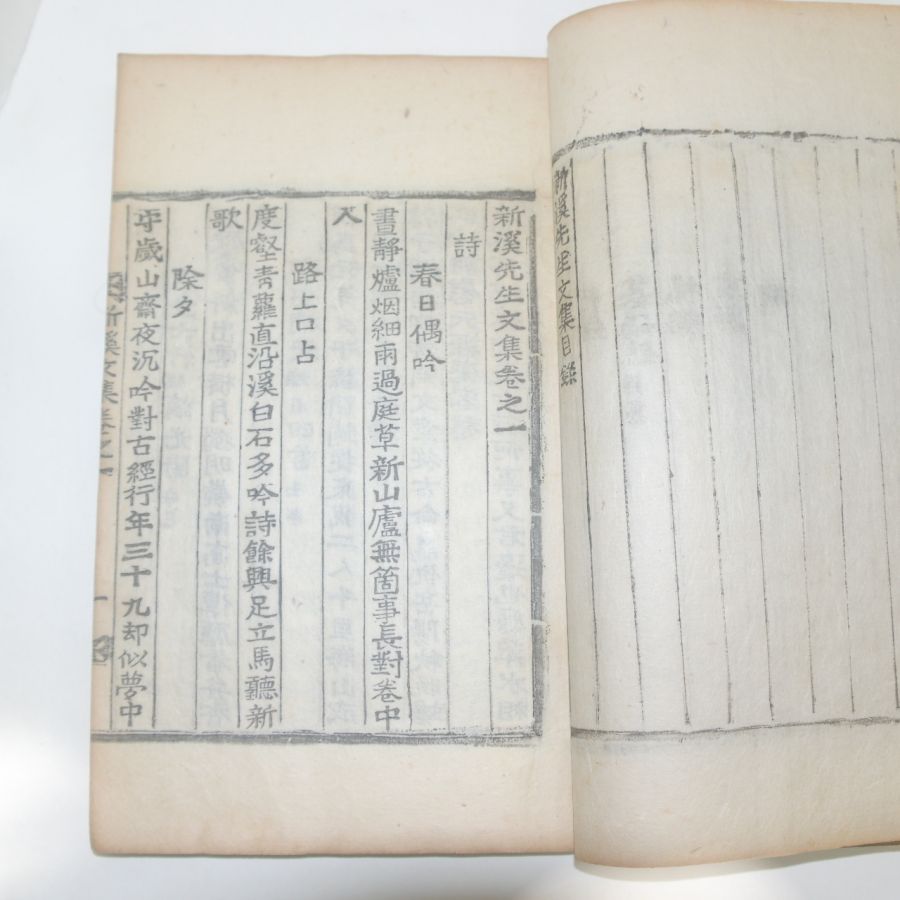 新溪先生文集目錄
新溪先生文集卷之一
詩
春日偶吟
晝靜爐烟細雨過庭草新山廬無箇事長對卷中
人
路上口占
度壑靑蘿直沿溪白石多吟詩餘興足立馬聽新
歌
除夕
守歲山齋夜沉吟對古經行年三十九却似夢中
新溪文集卷之一
一